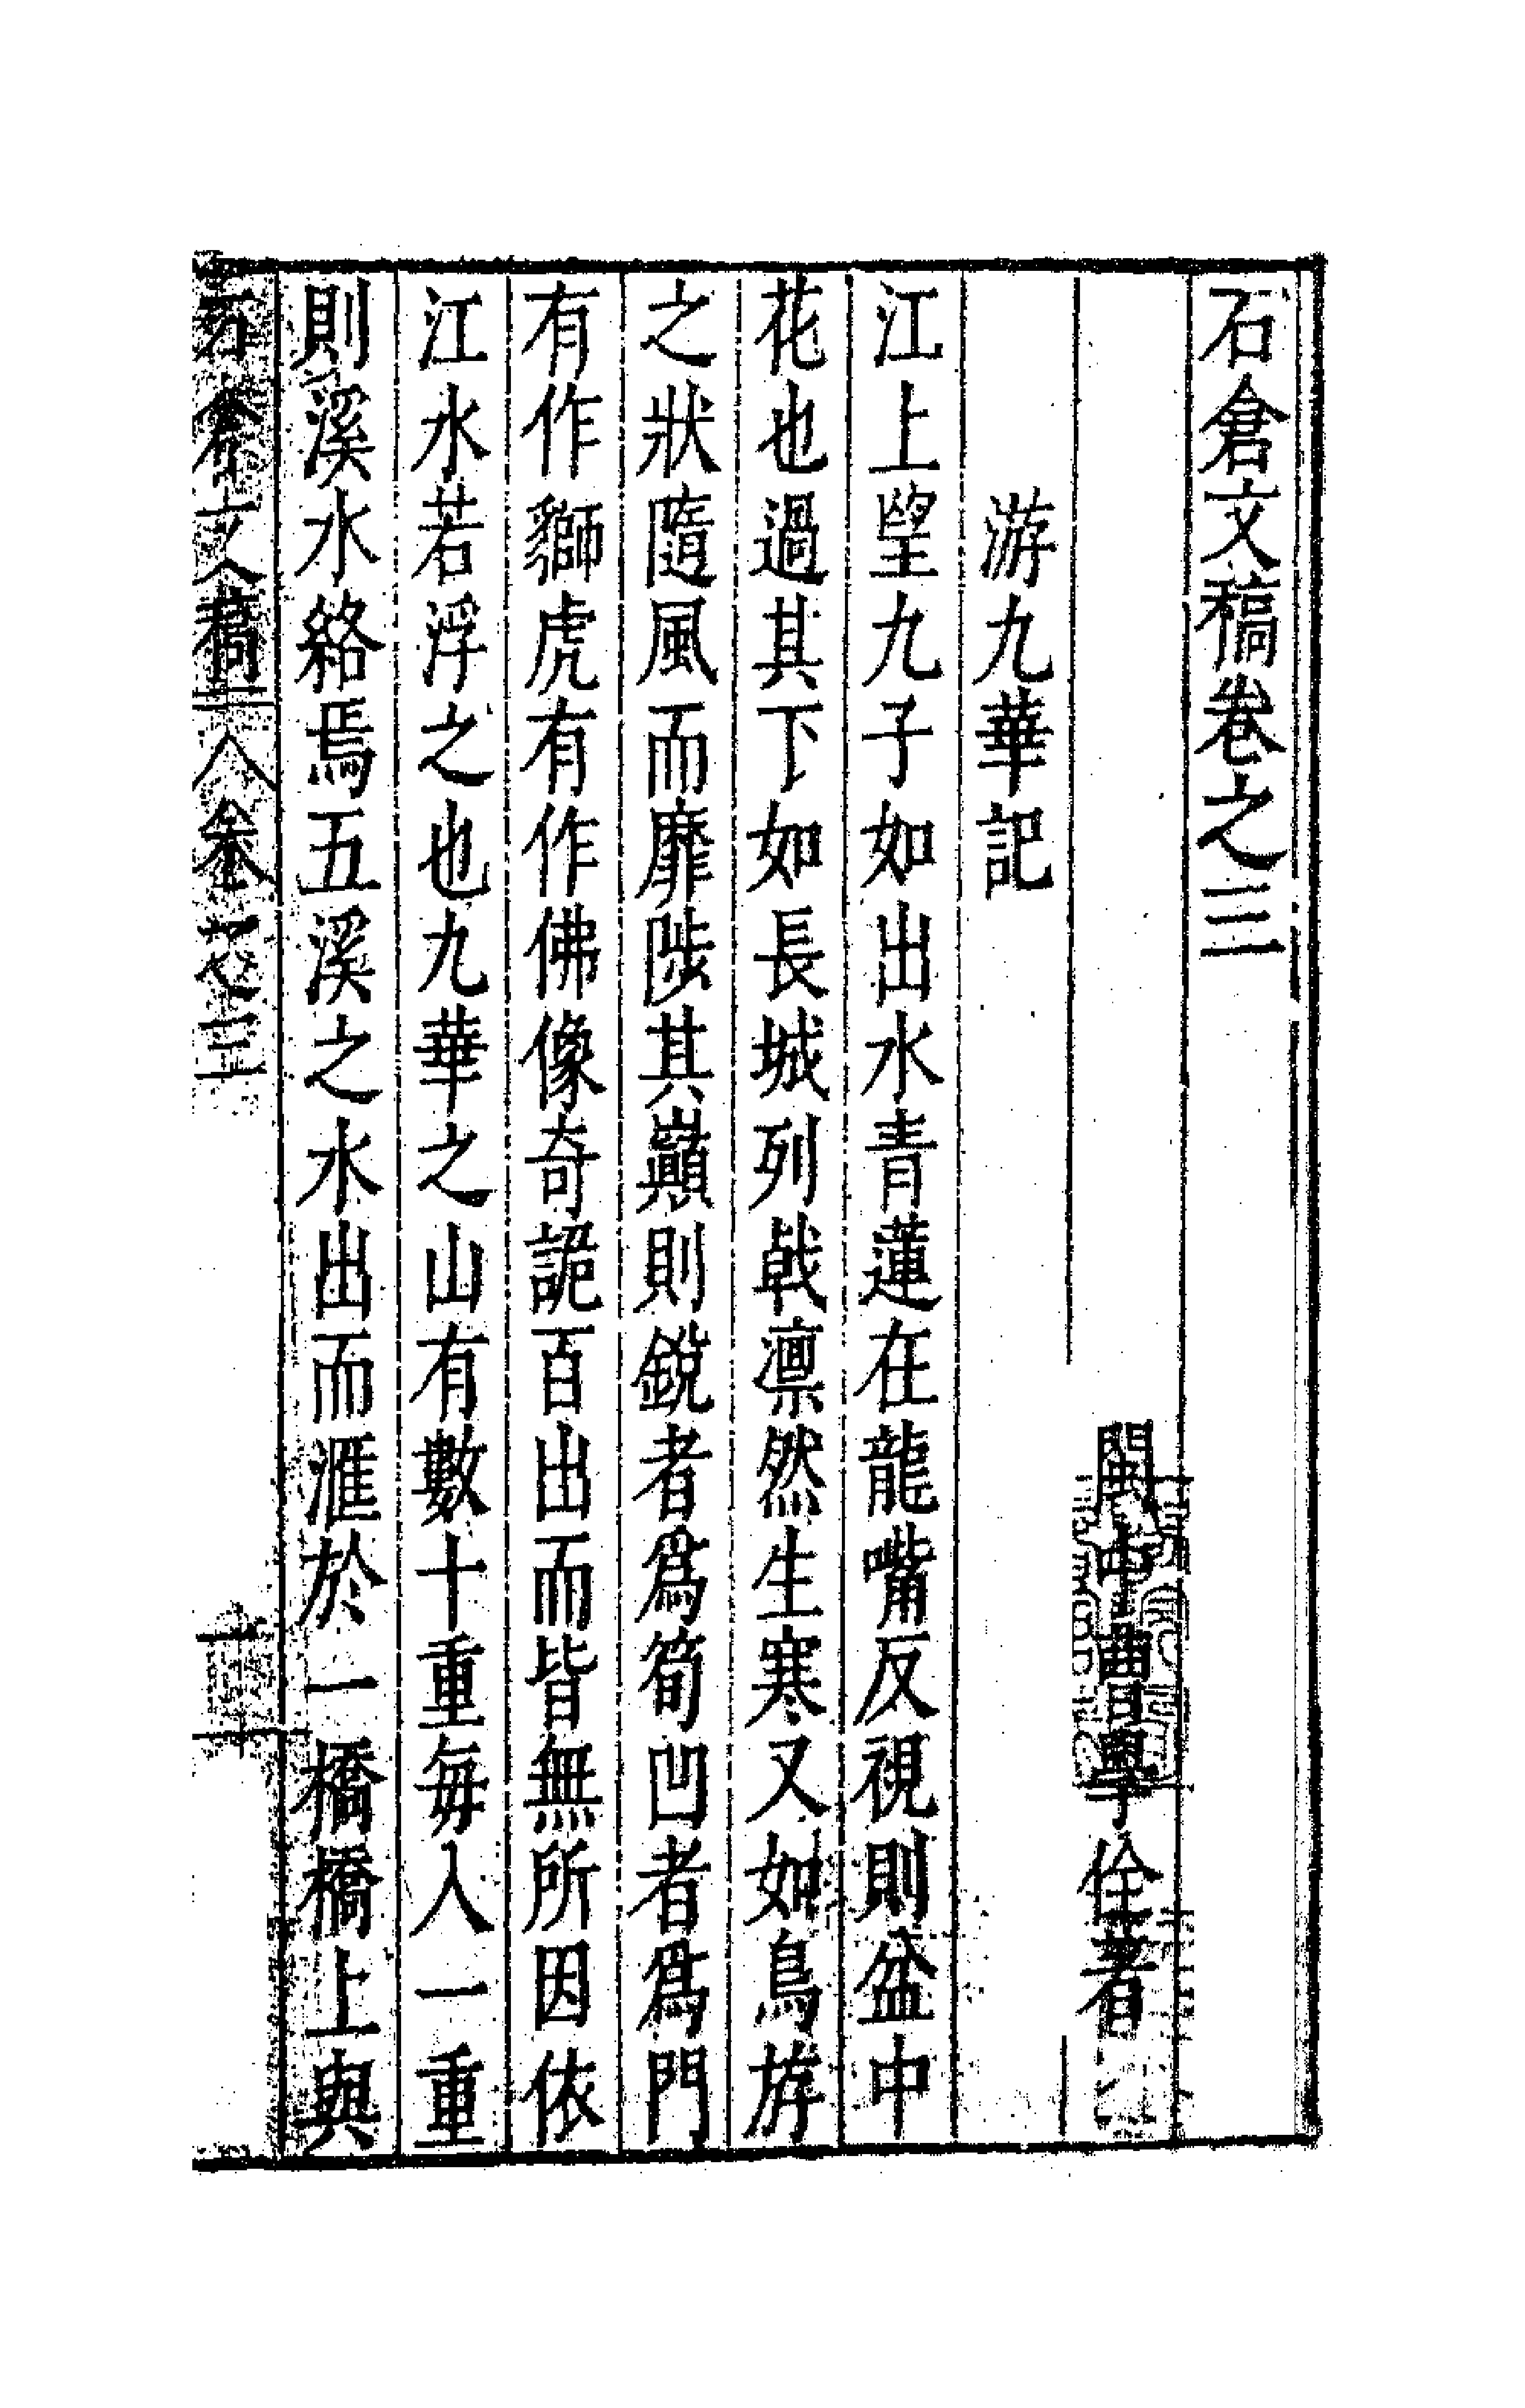 石倉文稿卷之三
閩中曹學佺著
游九華記
江上望九子如出水青蓮在龍嘴反視則盆中
花也過其下如長城列戟凛然生寒又如鳥斿
之狀隨風而靡陟其巔則銳者爲筍凹者爲門
有作獅虎有作佛像奇詭百出而皆無所因依
江水若浮之也九華之山有數十重每入一重
則溪水絡焉五溪之水出而滙於一橋橋上與
石倉文稿 卷之三